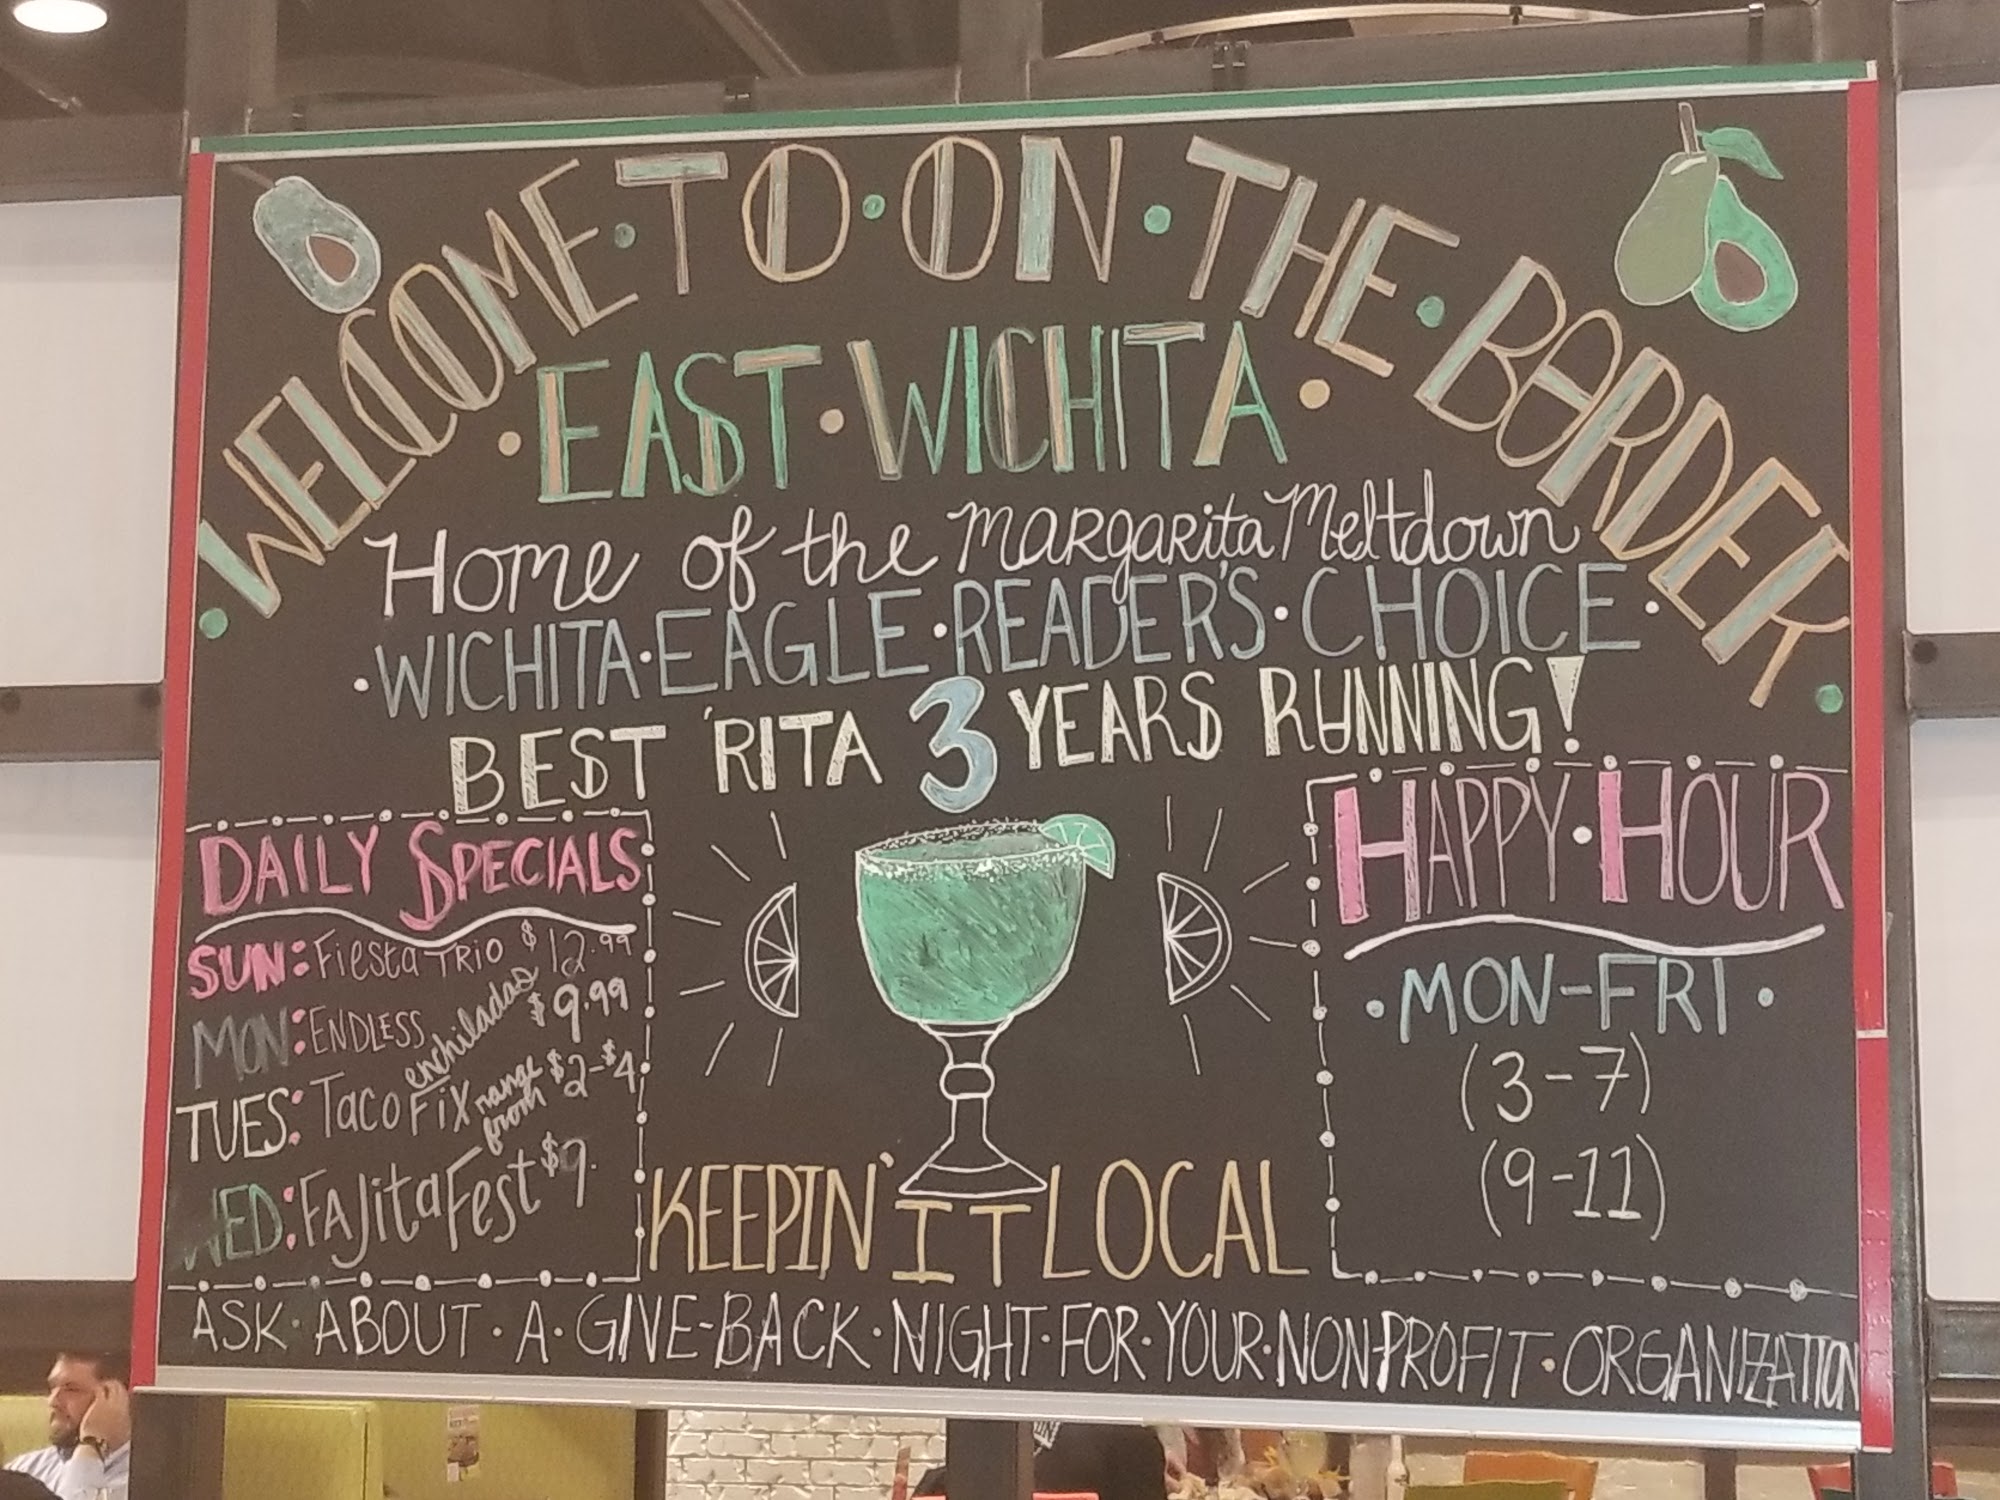 WELCOME·TO·ON·THE·BORDER
·EAST·WICHITA·
Home of the MARGARita Meltdown
·WICHITA·EAGLE·READER'S·CHOICE·
BEST 'RITA 3 YEARS RUNNING!
DAILY SPECIALS
SUN: Fiesta TRIO $12.99
MON: ENDLESS enchiladas $9.99
TUES: Taco FiX range from $2-$4
WED: FAJita Fest $9.
HAPPY·HOUR
·MON-FRI·
(3-7)
(9-11)
KEEPIN' IT LOCAL
ASK·ABOUT·A·GIVE-BACK·NIGHT·FOR·YOUR·NON-PROFIT·ORGANIZATION